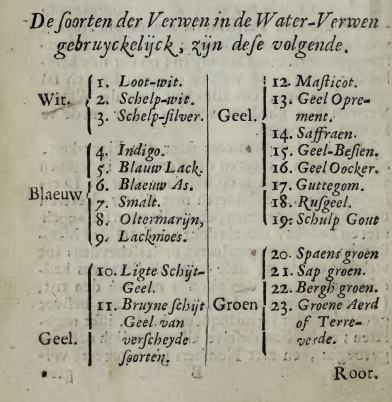 De ſoorten der Verwen in de Water-Verwen
gebruyckelijck, zijn deſe volgende.
Wit.
1. Loot-wit.
2. Schelp-wit.
3. Schelp-ſilver.
Blaeuw
4. Indigo.
5. Blauw Lack.
6. Blaeuw As.
7. Smalt.
8. Oltermarijn,
9. Lackmoes.
Geel.
10. Ligte Schijt-
Geel.
11. Bruyne ſchijt
Geel van
verſcheyde
ſoorten.
Geel.
12. Maſticot.
13. Geel Opre-
ment.
14. Saffraen.
15. Geel-Beſien.
16. Geel Oocker.
17. Guttegom.
18. Ruſgeel.
19. Schulp Gout
Groen
20. Spaens groen
21. Sap groen.
22. Bergh groen.
23. Groene Aerd
of Terre-
verde.
Root.